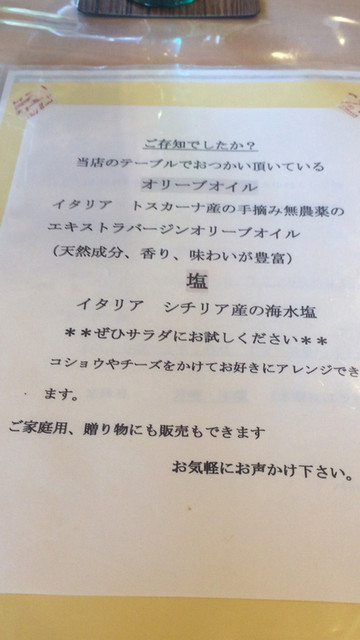 ご存知でしたか？
当店のテーブルでおつかい頂いている
オリーブオイル
イタリア　トスカーナ産の手摘み無農薬の
エキストラバージンオリーブオイル
（天然成分、香り、味わいが豊富）
塩
イタリア　シチリア産の海水塩
＊＊ぜひサラダにお試しください＊＊
コショウやチーズをかけてお好きにアレンジでき
ます。
ご家庭用、贈り物にも販売もできます
お気軽にお声かけ下さい。